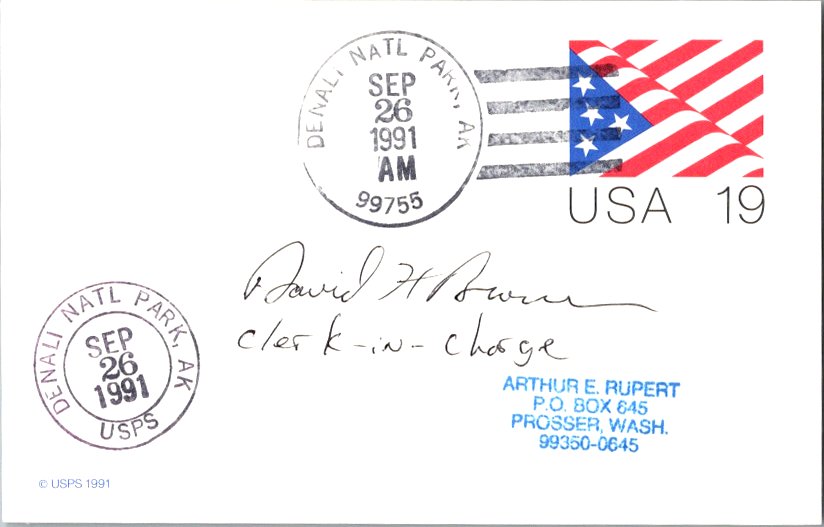 DENALI NATL PARK, AK
SEP
26
1991
AM
99755
USA 19
David H
Clerk-in-Charge
DENALI NATL PARK, AK
SEP
26
1991
USPS
ARTHUR E. RUPERT
P.O. BOX 645
PROSSER, WASH.
99350-0645
© USPS 1991